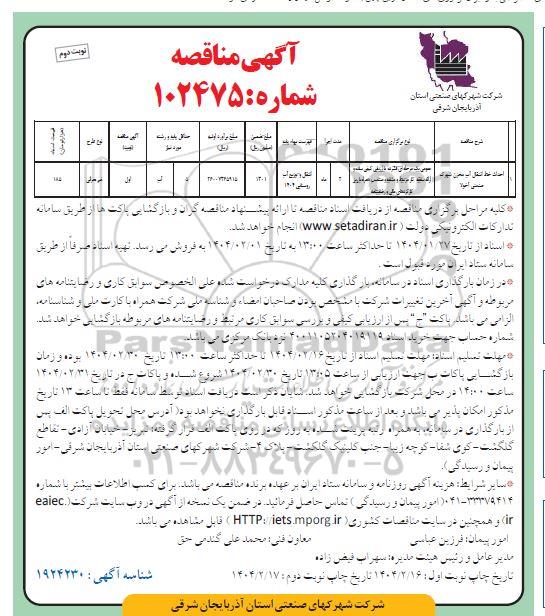 نوبت دوم
آگهی مناقصه
شماره: ۱۰۲۴۷۵
شرکت شهرکهای صنعتی استان
آذربایجان شرقی
شرح مناقصه
نوع برگزاری مناقصه
مدت اجرا
فهرست بهاء پایه
مبلغ تضمین (میلیون ریال)
مبلغ برآورد اولیه (ریال)
حداقل پایه و رشته مورد نیاز
آگهی مناقصه (نوبت)
نوع طرح
۱ احداث خط انتقال آب مخزن شهرک صنعتی
ماه
انتقال و توزیع آب روستایی ۱۴۰۴
۱۳۰۱
۵ آب اول غیرعمرانی ۱۸۵
*کلیه مراحل برگزاری مناقصه از دریافت اسناد مناقصه تا ارائه پیشنهاد مناقصه گران و بازگشایی پاکت ها از طریق سامانه
تدارکات الکترونیکی دولت (www.setadiran.ir) انجام خواهد شد.
*اسناد از تاریخ ۱۴۰۴/۰۱/۲۷ تا حداکثر ساعت ۱۳:۰۰ به تاریخ ۱۴۰۴/۰۲/۰۱ به فروش می رسد. تهیه اسناد صرفاً از طریق
سامانه ستاد ایران مورد قبول است.
*در زمان بارگذاری اسناد در سامانه، بارگذاری کلیه مدارک درخواست شده علی الخصوص سوابق کاری و رضایتنامه های
مربوطه و آگهی آخرین تغییرات شرکت با مشخص بودن صاحبان امضاء و شناسه ملی شرکت همراه با کارت ملی و شناسنامه،
الزامی می باشد. پاکت "ج" پس از ارزیابی کیفی و بررسی سوابق کاری مرتبط و رضایتنامه های مربوطه بازگشایی خواهد شد.
شماره حساب جهت خرید اسناد ۴۰۰۱۱۰۵۲۰۴۰۱۹۱۱۹ نزد بانک مرکزی می باشد.
*مهلت تسلیم اسناد: مهلت تسلیم اسناد از تاریخ ۱۴۰۴/۰۲/۱۶ تا حداکثر ساعت ۱۳:۰۰ تاریخ ۱۴۰۴/۰۲/۳۰ بوده و زمان
بازگشایی پاکات ب جهت ارزیابی از ساعت ۱۳:۰۵ تاریخ ۱۴۰۴/۰۲/۳۰ شروع شده و پاکات ج در تاریخ ۱۴۰۴/۰۲/۳۱
ساعت ۱۴:۰۰ در محل شرکت بازگشایی خواهد شد. شایان ذکر است دریافت اسناد توسط سامانه فقط تا ساعت ۱۳ تاریخ
مذکور امکان پذیر می باشد و بعد از ساعت مذکور اسناد قابل بارگذاری نخواهد بود( آدرس محل تحویل پاکت الف پس
از بارگذاری در سامانه، به همراه اوراق پرینت شده به روز که در توی پاکت الف قرار گرفته: تبریز-خیابان آزادی-تقاطع
گلگشت-کوی شفا-کوچه زیبا-جنب کلینیک گلگشت-پلاک ۴-شرکت شهرکهای صنعتی استان آذربایجان شرقی-امور
پیمان و رسیدگی).
*سایر شرایط: هزینه آگهی روزنامه و سامانه ستاد ایران بر عهده برنده مناقصه می باشد. برای کسب اطلاعات بیشتر با شماره
۰۴۱-۳۳۳۷۹۴۱۴ (امور پیمان و رسیدگی) تماس حاصل فرمائید. در ضمن یک نسخه از آگهی در وب سایت شرکت(eaiec.
ir) و همچنین در سایت مناقصات کشوری( HTTP://iets.mporg.ir ) قابل مشاهده می باشد.
امور پیمان: فرزین عباسی معاون فنی: محمد علی گندمی حق
مدیر عامل و رئیس هیئت مدیره: سهراب فیض زاده
تاریخ چاپ نوبت اول: ۱۴۰۴/۲/۱۶ تاریخ چاپ نوبت دوم: ۱۴۰۴/۲/۱۷ شناسه آگهی: ۱۹۲۴۲۳۰
شرکت شهرکهای صنعتی استان آذربایجان شرقی
۰۲۱-۸۸۳۴۹۶۷۰-۵